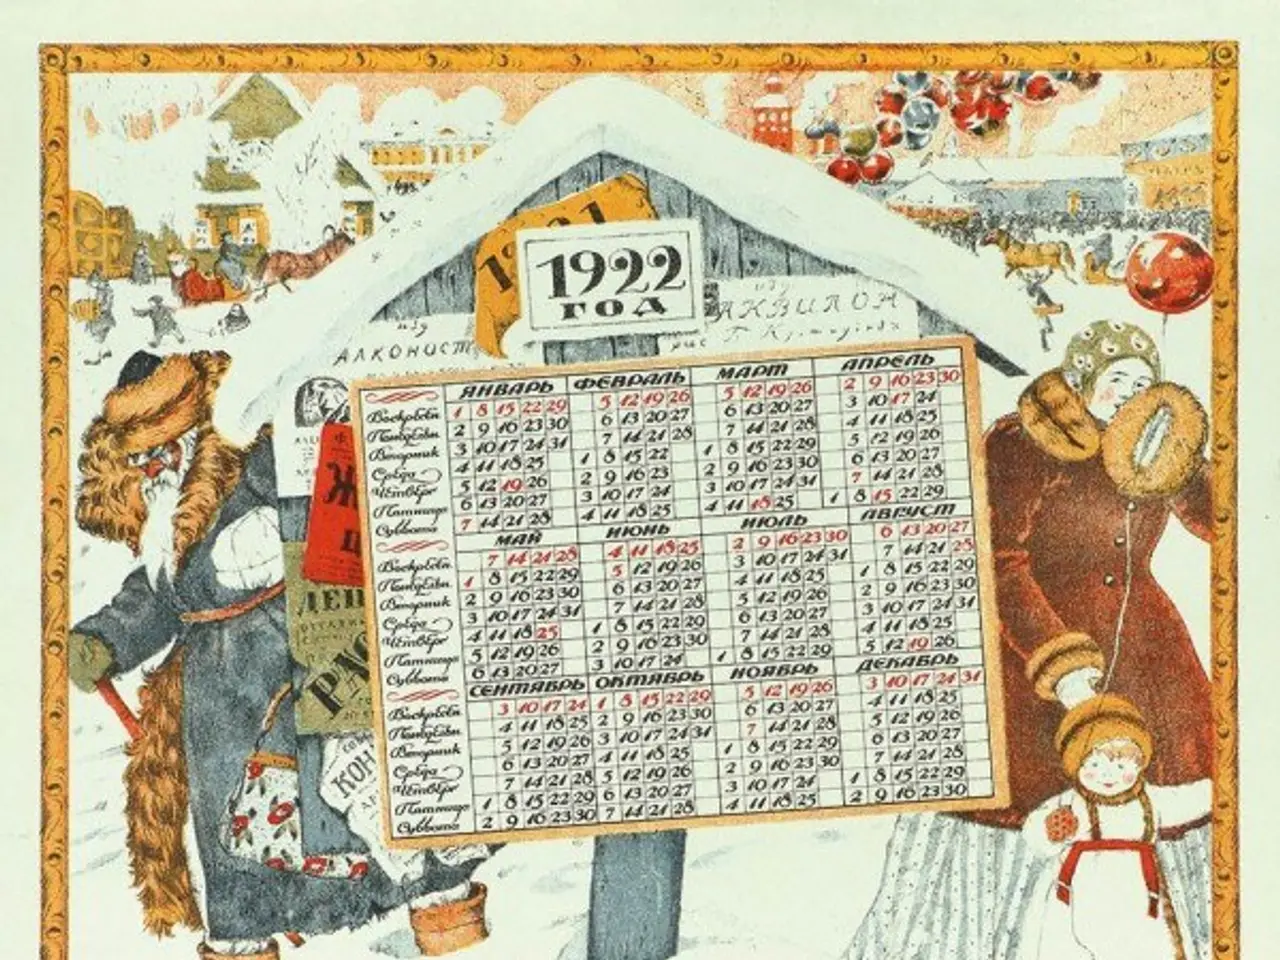 1921
1922
ГОД
изд
АКВИЛОН
изд
АЛКОНОСТ
ЯНВАРЬ ФЕВРАЛЬ МАРТ АПРЕЛЬ
1 8 15 22 29 5 12 19 26 5 12 19 26 2 9 16 23 30
2 9 16 23 30 6 13 20 27 6 13 20 27 3 10 17 24
Вторник 3 10 17 24 31 7 14 21 28 7 14 21 28 4 11 18 25
Среда 4 11 18 25 1 8 15 22 1 8 15 22 29 5 12 19 26
Четверг 5 12 19 26 2 9 16 23 2 9 16 23 30 6 13 20 27
Пятница 6 13 20 27 3 10 17 24 3 10 17 24 31 7 14 21 28
Суббота 7 14 21 28 4 11 18 25 4 11 18 25 1 8 15 22 29
МАЙ ИЮНЬ ИЮЛЬ АВГУСТ
7 14 21 28 4 11 18 25 2 9 16 23 30 6 13 20 27
1 8 15 22 29 5 12 19 26 3 10 17 24 31 7 14 21 28
Вторник 2 9 16 23 30 6 13 20 27 4 11 18 25 1 8 15 22 29
Среда 3 10 17 24 31 7 14 21 28 5 12 19 26 2 9 16 23 30
Четверг 4 11 18 25 1 8 15 22 29 6 13 20 27 3 10 17 24 31
Пятница 5 12 19 26 2 9 16 23 30 7 14 21 28 4 11 18 25
Суббота 6 13 20 27 3 10 17 24 1 8 15 22 29 5 12 19 26
СЕНТЯБРЬ ОКТЯБРЬ НОЯБРЬ ДЕКАБРЬ
3 10 17 24 1 8 15 22 29 5 12 19 26 3 10 17 24 31
4 11 18 25 2 9 16 23 30 6 13 20 27 4 11 18 25
Вторник 5 12 19 26 3 10 17 24 31 7 14 21 28 5 12 19 26
Среда 6 13 20 27 4 11 18 25 1 8 15 22 29 6 13 20 27
Четверг 7 14 21 28 5 12 19 26 2 9 16 23 30 7 14 21 28
Пятница 1 8 15 22 29 6 13 20 27 3 10 17 24 1 8 15 22 29
Суббота 2 9 16 23 30 7 14 21 28 4 11 18 25 2 9 16 23 30
Ж
ДЕН
РАС
КОН